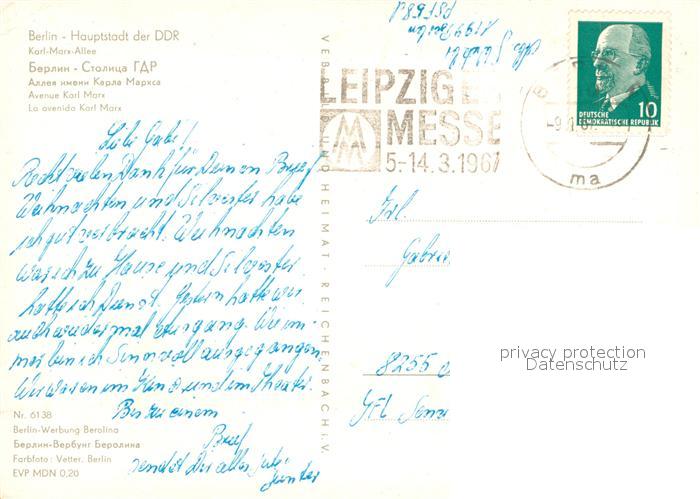 Berlin - Hauptstadt der DDR
Karl-Marx-Allee
Берлин - Столица ГДР
Аллея имени Карла Маркса
Avenue Karl Marx
La avenida Karl Marx
Liebe Gabi!
Recht vielen Dank für Deinen Brief
Weihnachten und Silvester habe
ich gut verbracht. Weihnachten
war ich zu Hause und Silvester
hatte ich Dienst. Gestern hatte wir
auch wieder mal Ausgang. Wie im-
mer bin ich Sinnvoll ausgegangen
Wir waren im Kino und im Theater.
Bis zu einem
Brief
sendet Dir alles gute
Günter
Nr. 6138
Berlin-Werbung Berolina
Берлин-Вербунг Беролина
Farbfoto: Vetter, Berlin
EVP MDN 0,20
VEB BILD UND HEIMAT · REICHENBACH i. V.
Berlin
LEIPZIGE
MESSE
5.-14. 3. 1967
MM
ma
DEUTSCHE
DEMOKRATISCHE REPUBLIK
10
Frl.
Gabri
8255
privacy protection
Datenschutz